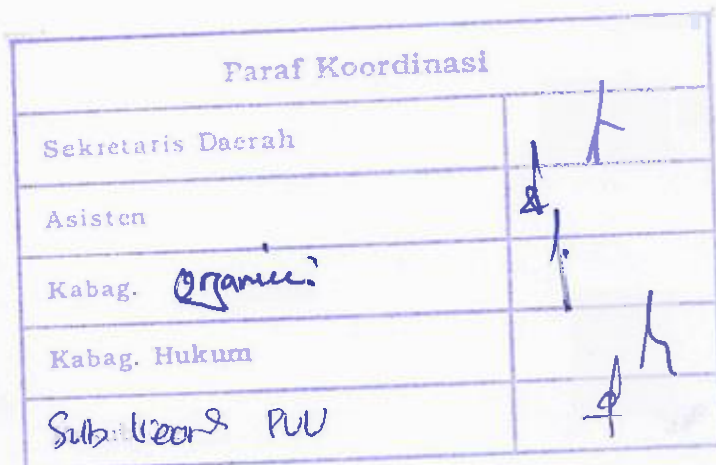 Paraf Koordinasi
Sekretaris Daerah
Asisten
Kabag. Organisasi
Kabag. Hukum
Sub PUU